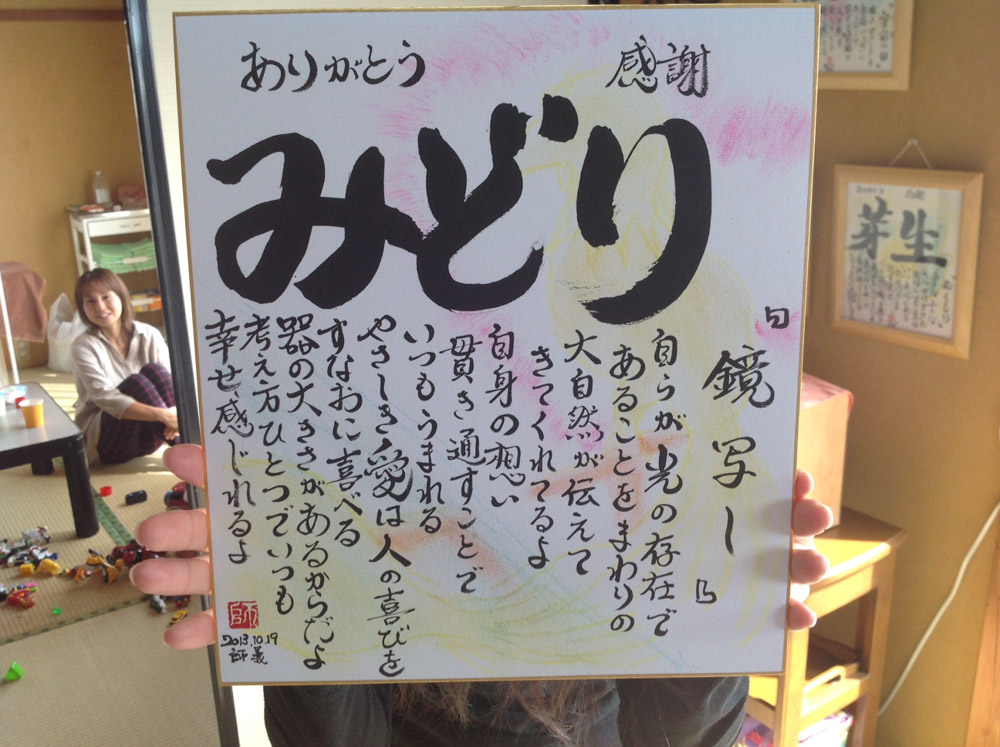 ありがとう
感謝
みどり
『鏡写し』
自らが光の存在で
あることをまわりの
大自然が伝えて
きてくれてるよ
自身の想い
貫き通すことで
いつもうまれる
やさしき愛は人の喜びを
すなおに喜べる
器の大きさがあるからだよ
考え方ひとつでいつも
幸せ感じれるよ
師
2013.10.19
師義
芽生